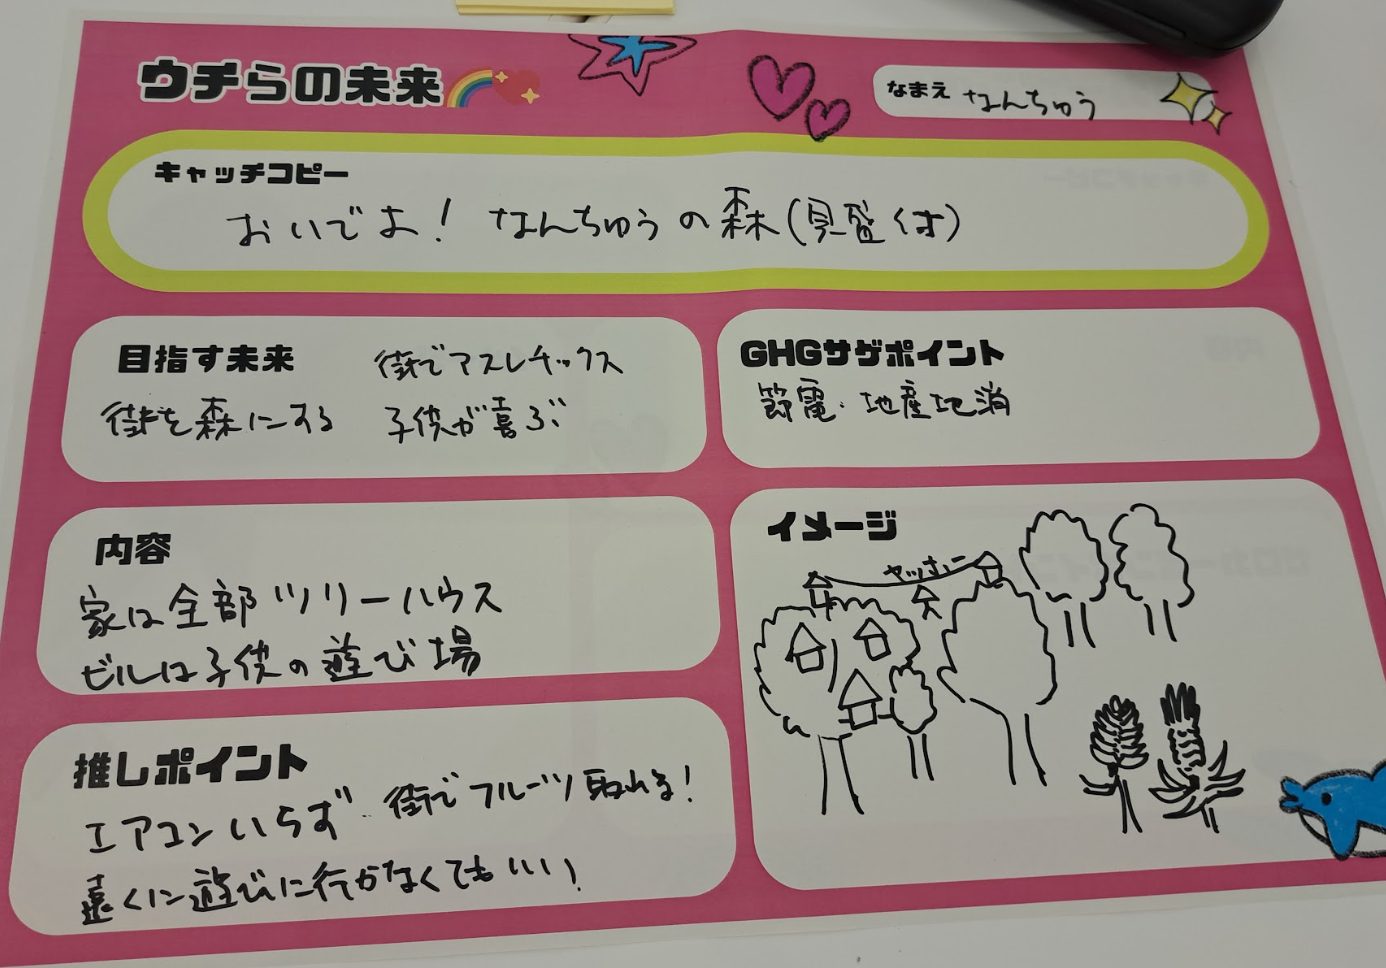 ウチらの未来
なまえ なんちゅう
キャッチコピー
おいでよ! なんちゅうの森(具盛は)
目指す未来
街を森にする
街でアスレチックス
子供が喜ぶ
GHGサゲポイント
節電・地産地消
内容
家は全部ツリーハウス
ビルは子供の遊び場
推しポイント
エアコンいらず 街でフルーツ取れる!
遠くに遊びに行かなくてもいい!
イメージ
ヤッホー